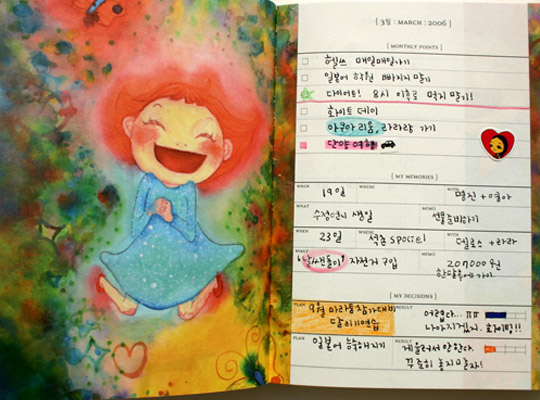 [ 3월 : MARCH : 2006 ]
[ MONTHLY POINTS ]
헬쓰 매일매일가기
일본어 학원 빠지지 말기
다이어트! 8시 이후로 먹지 말기!
화이트 데이
아쿠아리움, 라라랑 가기
단양여행
[ MY MEMORIES ]
WHEN 19일 WHERE WITH 명진 + 영아
WHAT 수정언니 생일 MEMO 선물준비하기
WHEN 23일 WHERE 석촌 spoziel WITH 델로스 + 라라
WHAT "날쌘돌이" 자전거 구입 MEMO 207000원
[ MY DECISIONS ]
PLAN 9월 마라톤참가대비 RESULT 어렵다...
달리기연습 나아지겠지. 화이팅!!
PLAN 일본어 능숙해지기 RESULT 게을러서 안한다.
꾸준히 놓지말자!